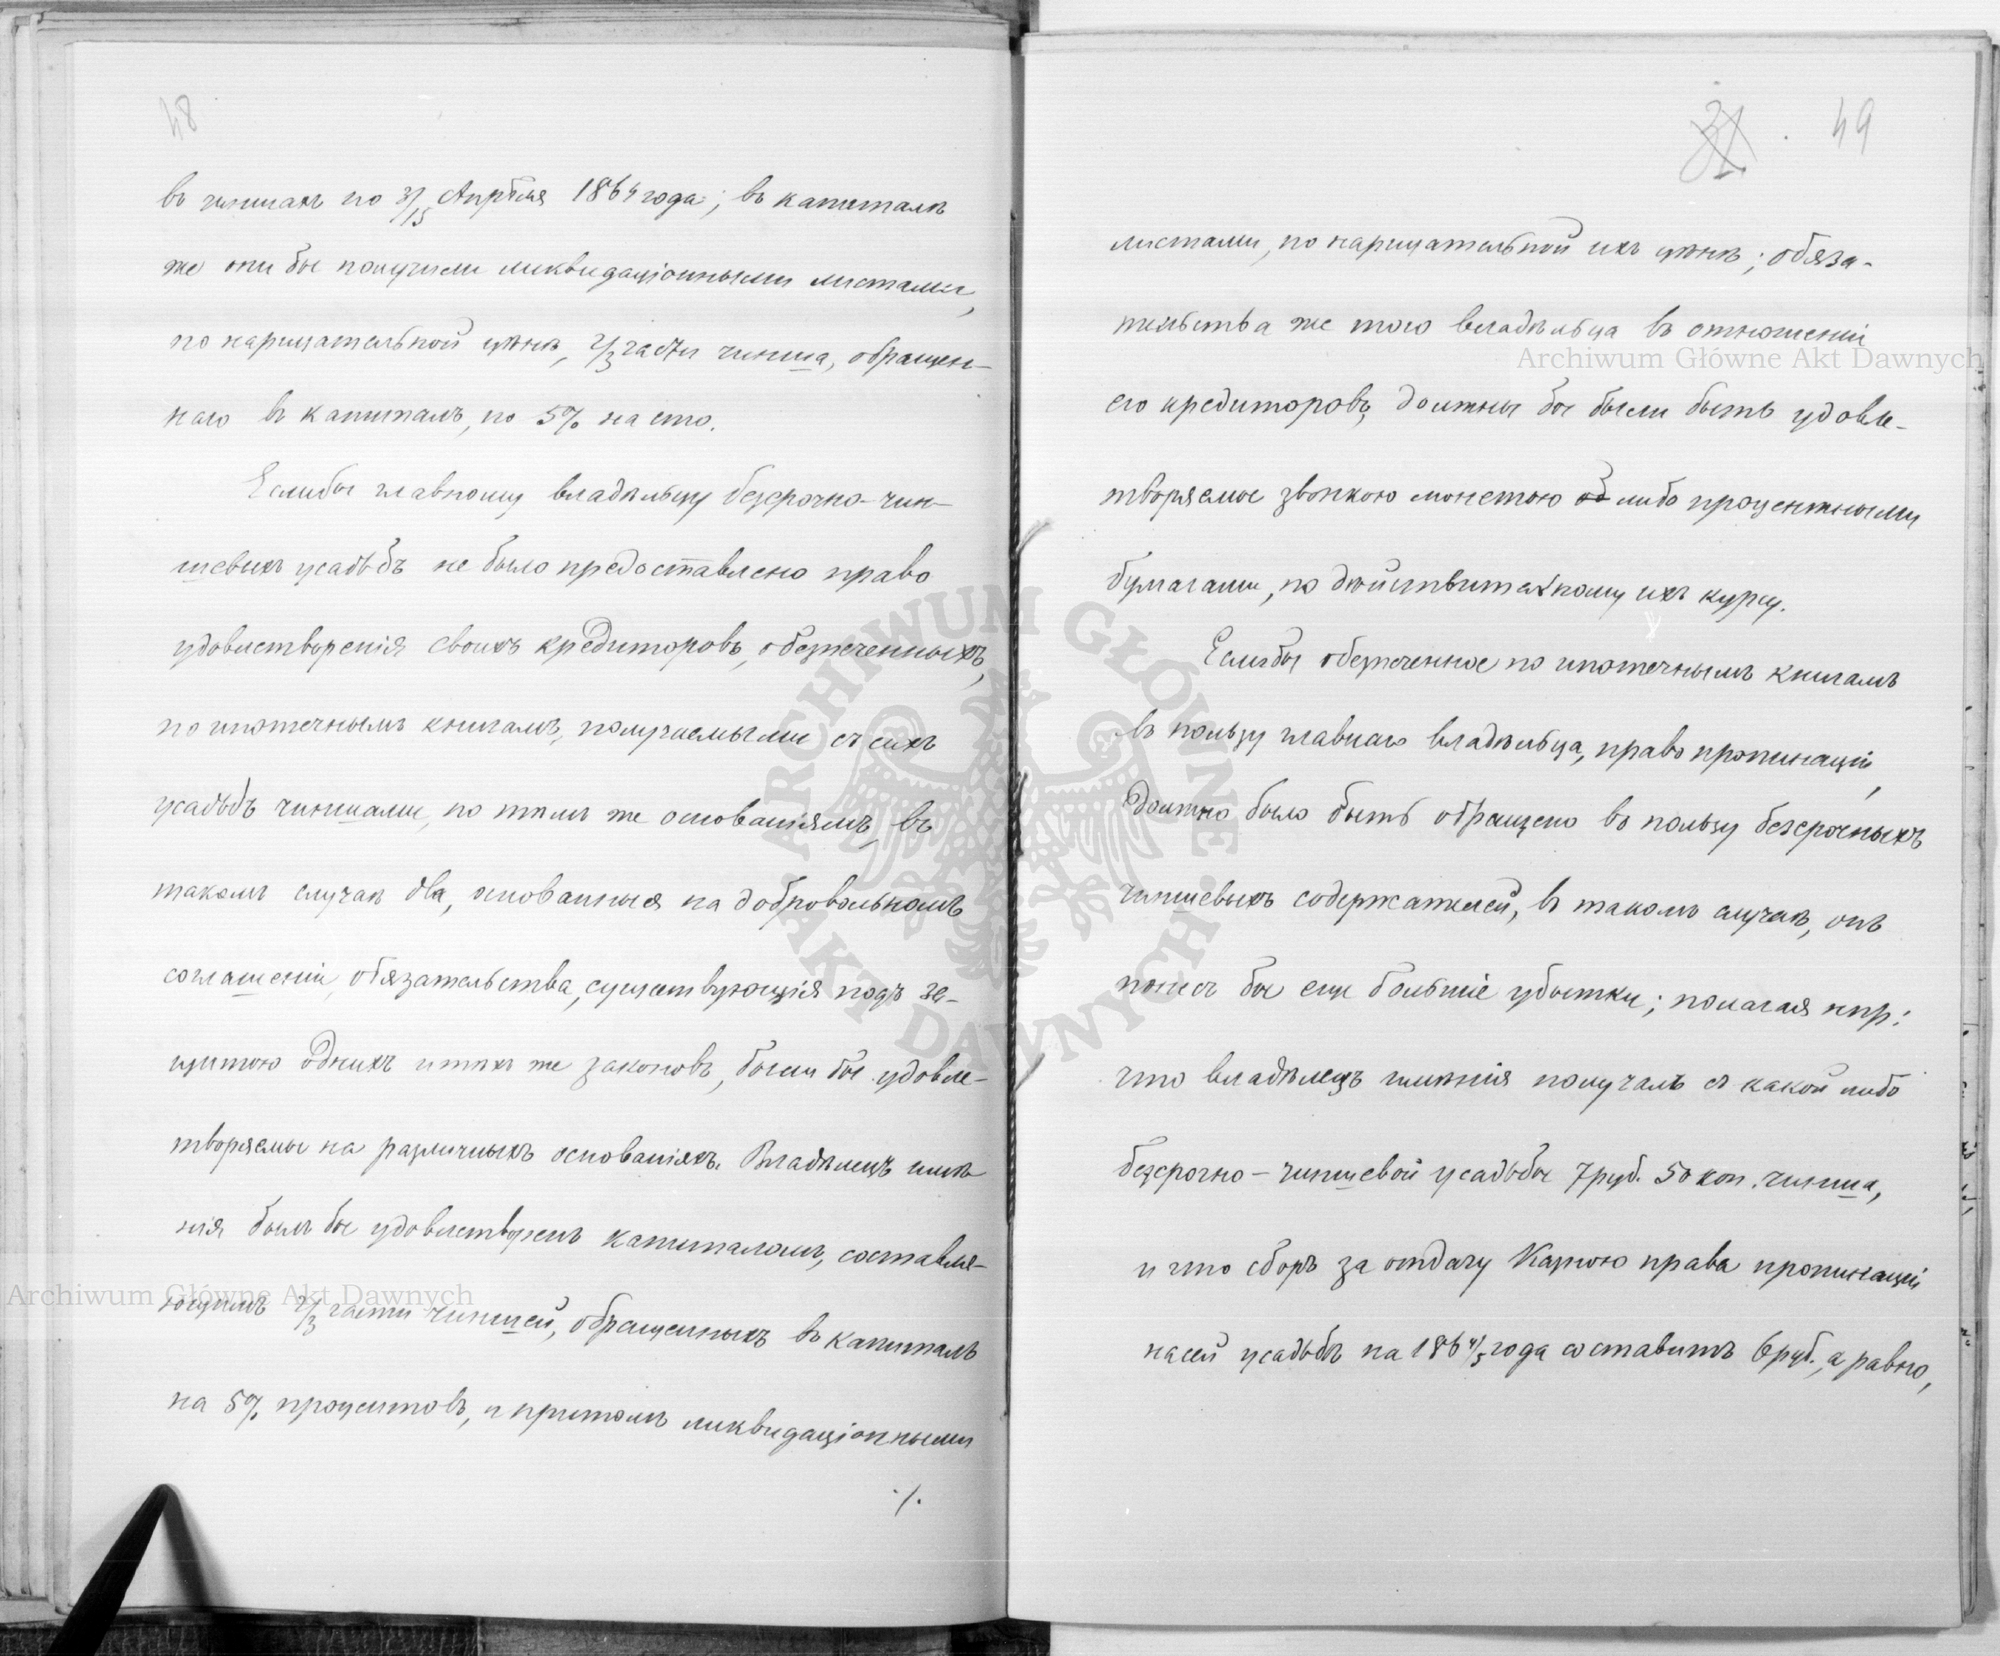 48
въ чиншахъ по 3/15 Апрѣля 1864 года; въ капиталѣ
же они бы получили ликвидаціонными листами,
по нарицательной цѣнѣ, 2/3 части чинша, обращен-
наго въ капиталъ, по 5% на сто.
Еслибы главному владѣльцу безсрочно-чин-
шевыхъ усадьбъ не было предоставлено право
удовлетворенія своихъ кредиторовъ, обезпеченныхъ,
по ипотечнымъ книгамъ, получаемыми съ сихъ
усадьбъ чиншами, по тѣмъ же основаніямъ, въ
такомъ случаѣ два, основанныя на добровольномъ
соглашеніи, обязательства, существующія подъ за-
щитою однихъ и тѣхъ же законовъ, были бы удовле-
творяемы на различныхъ основаніяхъ. Владѣлецъ имѣ
нія былъ бы удовлетворенъ капиталомъ, составля-
ющимъ 2/3 части чиншей, обращенныхъ въ капиталъ
на 5% процентовъ, и притомъ ликвидаціонными
·/.
31. 49
листами, по нарицательной ихъ цѣнѣ; обяза-
тельства же того владѣльца въ отношеніи
его кредиторовъ, должны бы были быть удовле-
творяемы звонкою монетою об либо процентными
бумагами, по дѣйствительному ихъ курсу.
Еслибы обезпеченное по ипотечнымъ книгамъ
въ пользу главнаго владѣльца, право пропинаціи,
должно было быть обращено въ пользу безсрочныхъ
чиншевыхъ содержателей, въ такомъ случаѣ, онъ
понесъ бы еще большіе убытки; полагая нпр:
что владѣлецъ имѣнія получалъ съ какой либо
безсрочно-чиншевой усадьбы 7 руб. 50 коп. чинша,
и что сборъ за отдачу Казною права пропинаціи
на сей усадьбѣ на 1864/5 года составитъ 6 руб., а равно,
Archiwum Główne Akt Dawnych
Archiwum Główne Akt Dawnych
ARCHIWUM GŁÓWNE · AKT DAWNYCH ·